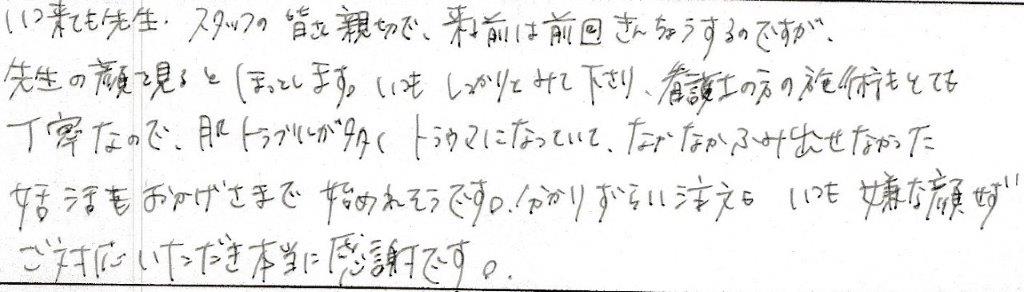 いつ来ても先生・スタッフの皆さん親切で、来る前は前回きんちょうするのですが、
先生の顔を見るとほっとします。いつもしっかりとみて下さり、看護士の方の施術もとても
丁寧なので、肌トラブルが多くトラウマになっていて、なかなかふみ出せなかった
婚活もおかげさまで始められそうです。分かりずらい注文もいつも嫌な顔せず
ご対応いただき本当に感謝です。